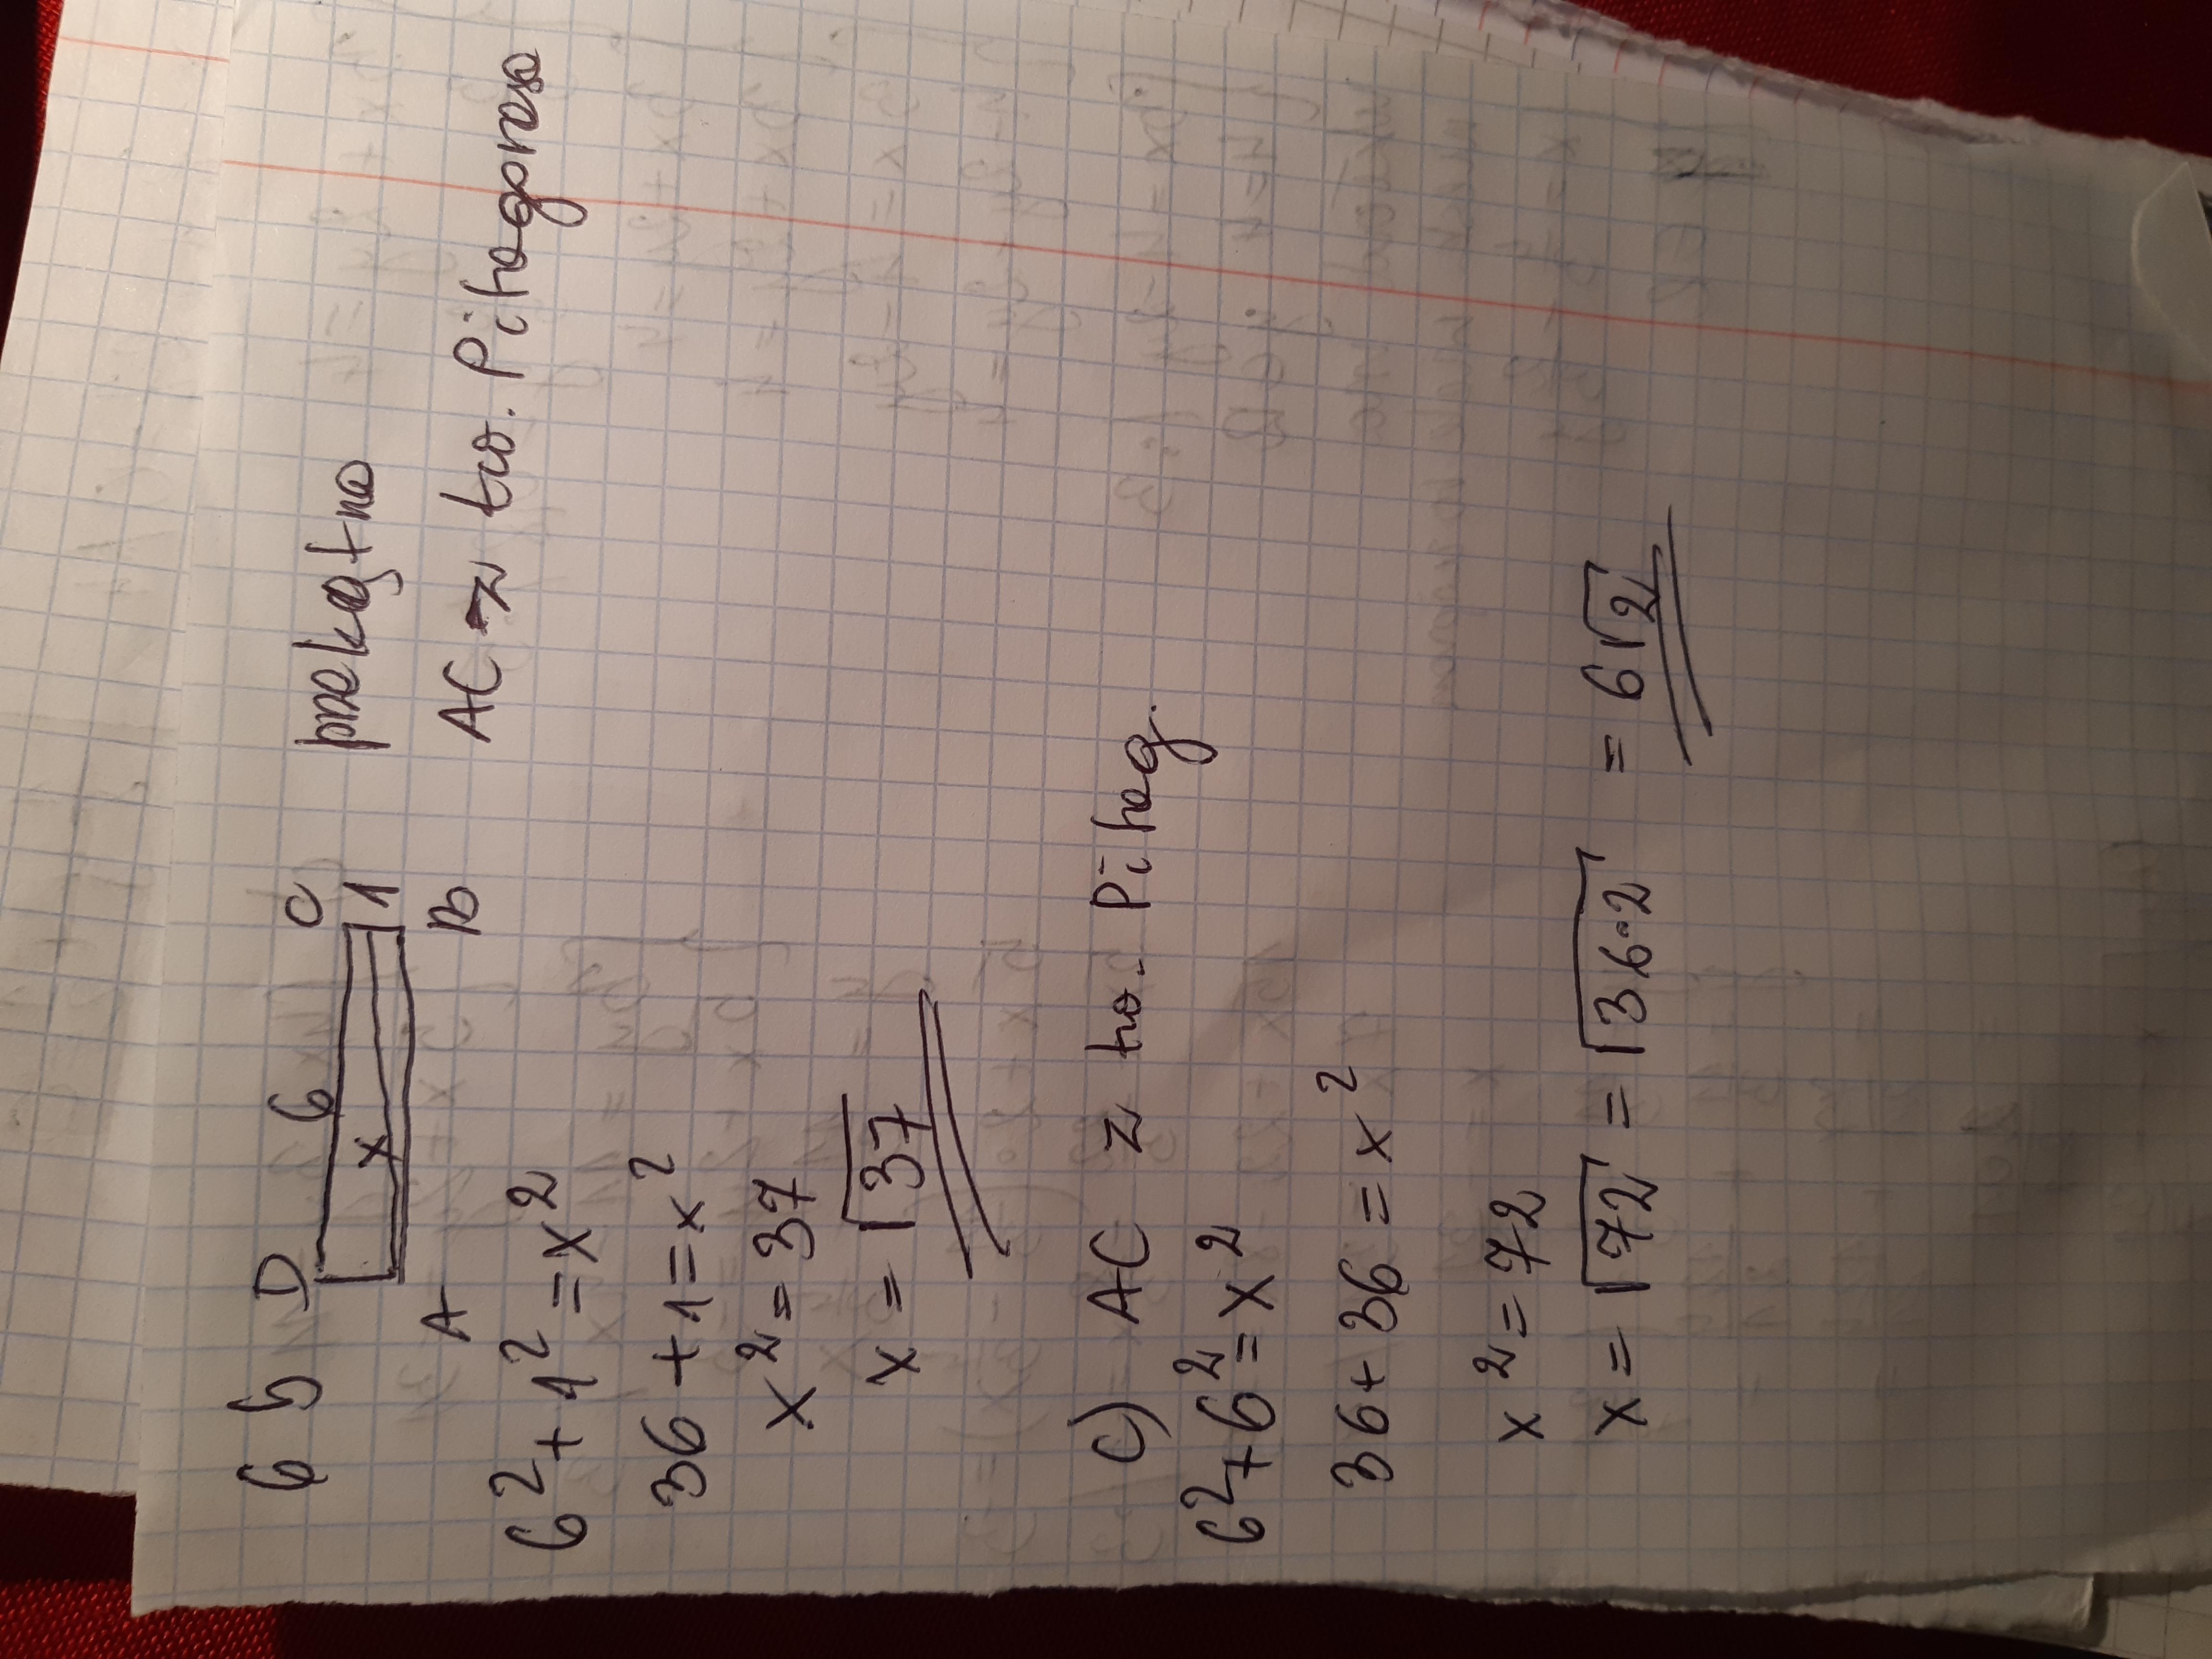 6 b D 6 C przekątna
x 1
A B AC z tw. Pitagorasa
6² + 1² = x²
36 + 1 = x²
x² = 37
x = √37
c) AC z tw. Pitag.
6² + 6² = x²
36 + 36 = x²
x² = 72
x = √72 = √36·2 = 6√2